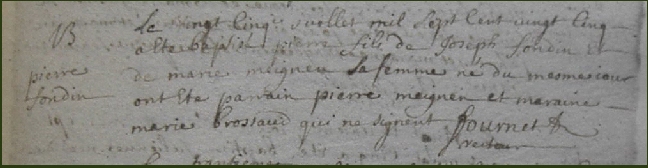 B
pierre
fondin
Le vingt cinq juollet mil sept cent vingt cinq
a este baptisé pierre fils de Joseph fondin et
de marie meignen sa femme né du mesme iour
ont este parrain pierre meignen et maraine
marie brossaud qui ne signent fournet
recteur